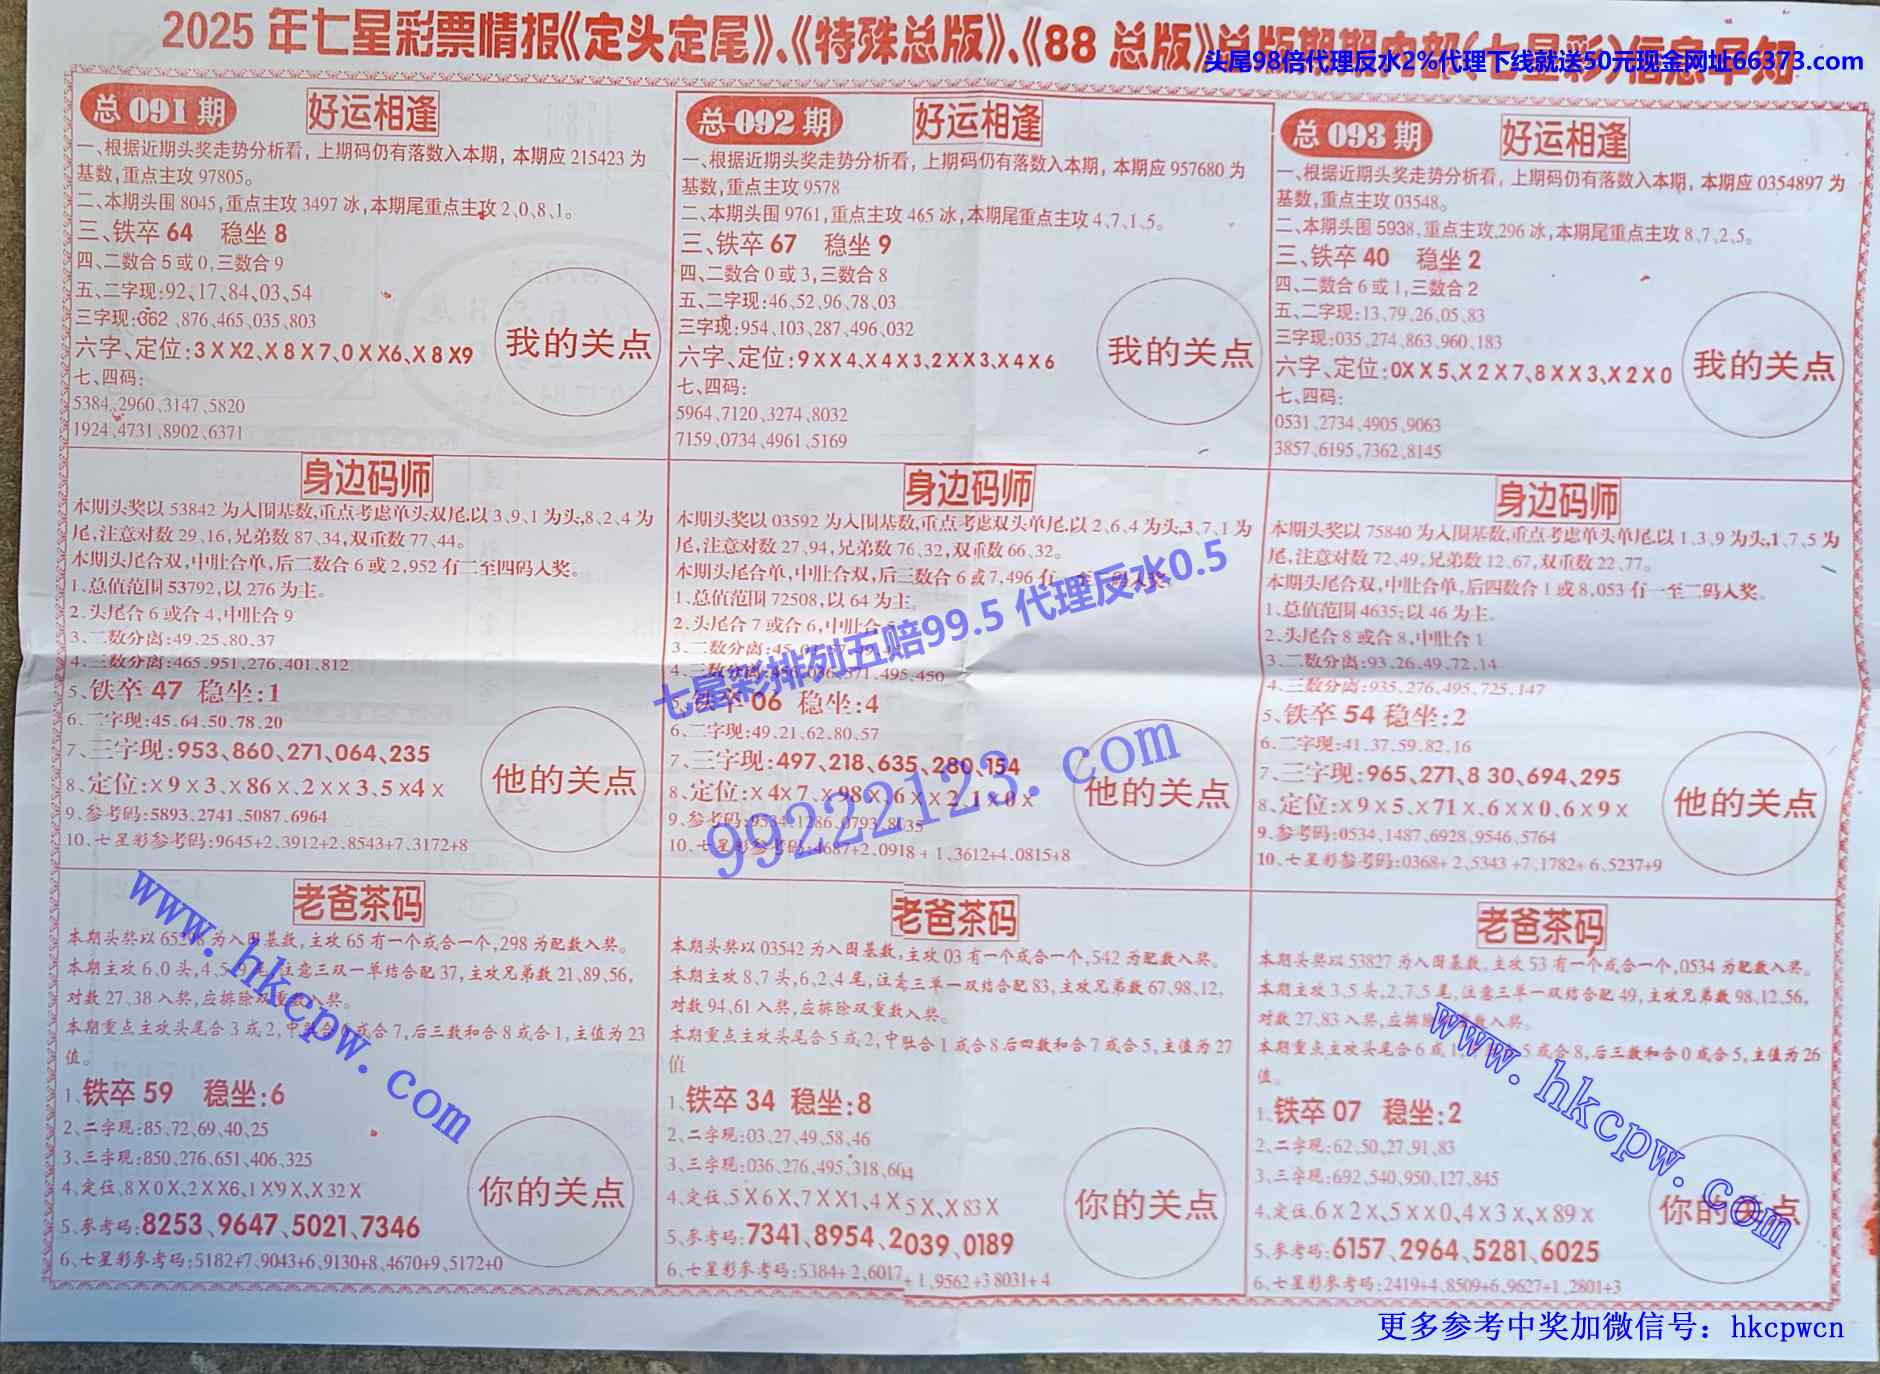 2025年七星彩票情报《定头定尾》、《特殊总版》、《88总版》总版期期中部《七星彩》信息早知
头尾98倍代理反水2%代理下线就送50元现金网址66373.com
总091期 好运相逢
一、根据近期头奖走势分析看，上期码仍有落数入本期，本期应215423为
基数,重点主攻97805。
二、本期头围8045,重点主攻3497冰,本期尾重点主攻2、0、8、1。
三、铁卒64 稳坐8
四、二数合5或0,三数合9
五、二字现:92、17、84、03、54
三字现:662、876、465、035、803
六字、定位:3XX2、X8X7、0XX6、X8X9
七、四码:
5384、2960、3147、5820
1924、4731、8902、6371
我的关点
总092期 好运相逢
一、根据近期头奖走势分析看，上期码仍有落数入本期，本期应957680为
基数,重点主攻9578
二、本期头围9761,重点主攻465冰,本期尾重点主攻4、7、1、5。
三、铁卒67 稳坐9
四、二数合0或3,三数合8
五、二字现:46、52、96、78、03
三字现:954、103、287、496、032
六字、定位:9XX4、X4X3、2XX3、X4X6
七、四码:
5964、7120、3274、8032
7159、0734、4961、5169
我的关点
总093期 好运相逢
一、根据近期头奖走势分析看，上期码仍有落数入本期，本期应0354897为
基数,重点主攻03548。
二、本期头围5938,重点主攻296冰,本期尾重点主攻8、7、2、5。
三、铁卒40 稳坐2
四、二数合6或1,三数合2
五、二字现:13、79、26、05、83
三字现:035、274、863、960、183
六字、定位:0XX5、X2X7、8XX3、X2X0
七、四码:
0531、2734、4905、9063
3857、6195、7362、8145
我的关点
身边码师
本期头奖以53842为入围基数,重点考虑单头双尾.以3、9、1为头,8、2、4为
尾,注意对数29、16,兄弟数87、34,双重数77、44。
本期头尾合双,中肚合单,后二数合6或2,952有二至四码入奖。
1、总值范围53792,以276为主。
2、头尾合6或合4,中肚合9
3、二数分离:49、25、80、37
4、三数分离:465、951、276、401、812
5、铁卒47 稳坐:1
6、二字现:45、64、50、78、20
7、三字现:953、860、271、064、235
8、定位:X9X3、X86X、2XX3、5X4X
9、参考码:5893、2741、5087、6964
10、七星彩参考码:9645+2、3912+2、8543+7、3172+8
他的关点
身边码师
本期头奖以03592为入围基数,重点考虑双头单尾.以2、6、4为头,3、7、1为
尾,注意对数27、94,兄弟数76、32,双重数66、32。
本期头尾合单,中肚合双,后三数合6或7,496有一至二码入奖
1、总值范围72508,以64为主。
2、头尾合7或合6,中肚合
3、二数分离:45
4、三数分离:495、450
5、铁卒06 稳坐:4
6、二字现:49、21、62、80、57
7、三字现:497、218、635、280、154
8、定位:X4X7、X98X、6XX2、1X0X
9、参考码:9534、1286、0793、8035
10、七星彩参考码:4687+2、0918+1、3612+4、0815+8
他的关点
身边码师
本期头奖以75840为入围基数,重点考虑单头单尾.以1、3、9为头,1、7、5为
尾,注意对数72、49,兄弟数12、67,双重数22、77。
本期头尾合双,中肚合单,后四数合1或8,053有一至二码入奖。
1、总值范围4635;以46为主。
2、头尾合8或合8,中肚合1
3、二数分离:93、26、49、72、14
4、三数分离:935、276、495、725、147
5、铁卒54 稳坐:2
6、二字现:41、37、59、82、16
7、三字现:965、271、830、694、295
8、定位:X9X5、X71X、6XX0、6X9X
9、参考码:0534、1487、6928、9546、5764
10、七星彩参考码:0368+2、5343+7、1782+6、5237+9
他的关点
七星彩排列五赔99.5 代理反水0.5
99222123.com
老爸茶码
本期头奖以65298为入围基数,主攻65有一个或合一个,298为配数入奖。
本期主攻6、0头,4、5、9尾,注意三双一单结合配37,主攻兄弟数21、89、56,
对数27、38入奖,应排除双重数入奖。
本期重点主攻头尾合3或2,中肚合 或合7,后三数和合8或合1,主值为23
值。
1、铁卒59 稳坐:6
2、二字现:85、72、69、40、25
3、三字现:850、276、651、406、325
4、定位、8X0X、2XX6、1X9X、X32X
5、参考码:8253、9647、5021、7346
6、七星彩参考码:5182+7、9043+6、9130+8、4670+9、5172+0
你的关点
老爸茶码
本期头奖以03542为入围基数,主攻03有一个或合一个,542为配数入奖。
本期主攻8、7头,6、2、4尾,注意三单一双结合配83,主攻兄弟数67、98、12,
对数94、61入奖,应排除双重数入奖。
本期重点主攻头尾合5或2,中肚合1或合8后四数和合7或合5,主值为27
值
1、铁卒34 稳坐:8
2、二字现:03、27、49、58、46
3、三字现:036、276、495、318、604
4、定位、5X6X、7XX1、4X5X、X83X
5、参考码:7341、8954、2039、0189
6、七星彩参考码:5384+2、6017+1、9562+3 8031+4
你的关点
老爸茶码
本期头奖以53827为入围基数,主攻53有一个或合一个,0534为配数入奖。
本期主攻3、5头,2、7、5尾,注意三单一双结合配49,主攻兄弟数98、12、56,
对数27、83入奖,应排除双重数入奖。
本期重点主攻头尾合6或1 5或合8,后三数和合0或合5,主值为26
值。
1、铁卒07 稳坐:2
2、二字现:62、50、27、91、83
3、三字现:692、540、950、127、845
4、定位、6X2X、5XX0、4X3X、X89X
5、参考码:6157、2964、5281、6025
6、七星彩参考码:2419+4、8509+6、9627+1、2801+3
你的关点
www.hkcpw.com
www.hkcpw.com
更多参考中奖加微信号：hkcpwcn